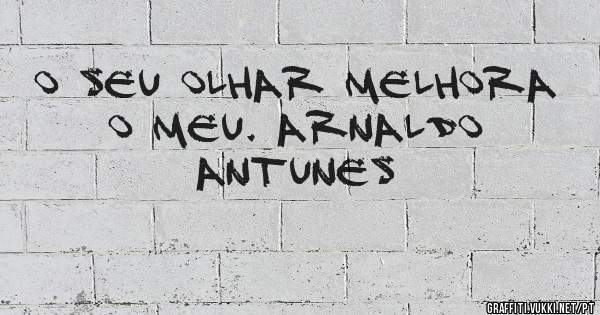 O SEU OLHAR MELHORA
O MEU. ARNALDO
ANTUNES
GRAFFITI.VUKKI.NET/PT